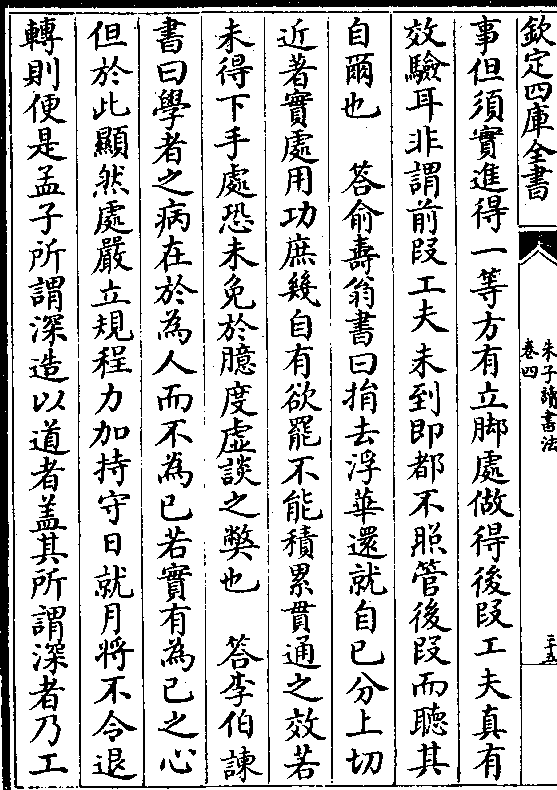 欽定四庫全書
朱子讀書法
卷四
三十五
事但須實進得一等方有立脚處做得後段工夫真有
效驗耳非謂前段工夫未到即都不照管後段而聽其
自爾也　答俞壽翁書曰捐去浮華還就自已分上切
近著實處用功庶幾自有欲罷不能積累貫通之效若
未得下手處恐未免於臆度虛談之弊也　答李伯諫
書曰學者之病在於為人而不為已若實有為已之心
但於此顯然處嚴立規程力加持守日就月將不令退
轉則便是孟子所謂深造以道者盖其所謂深者乃工